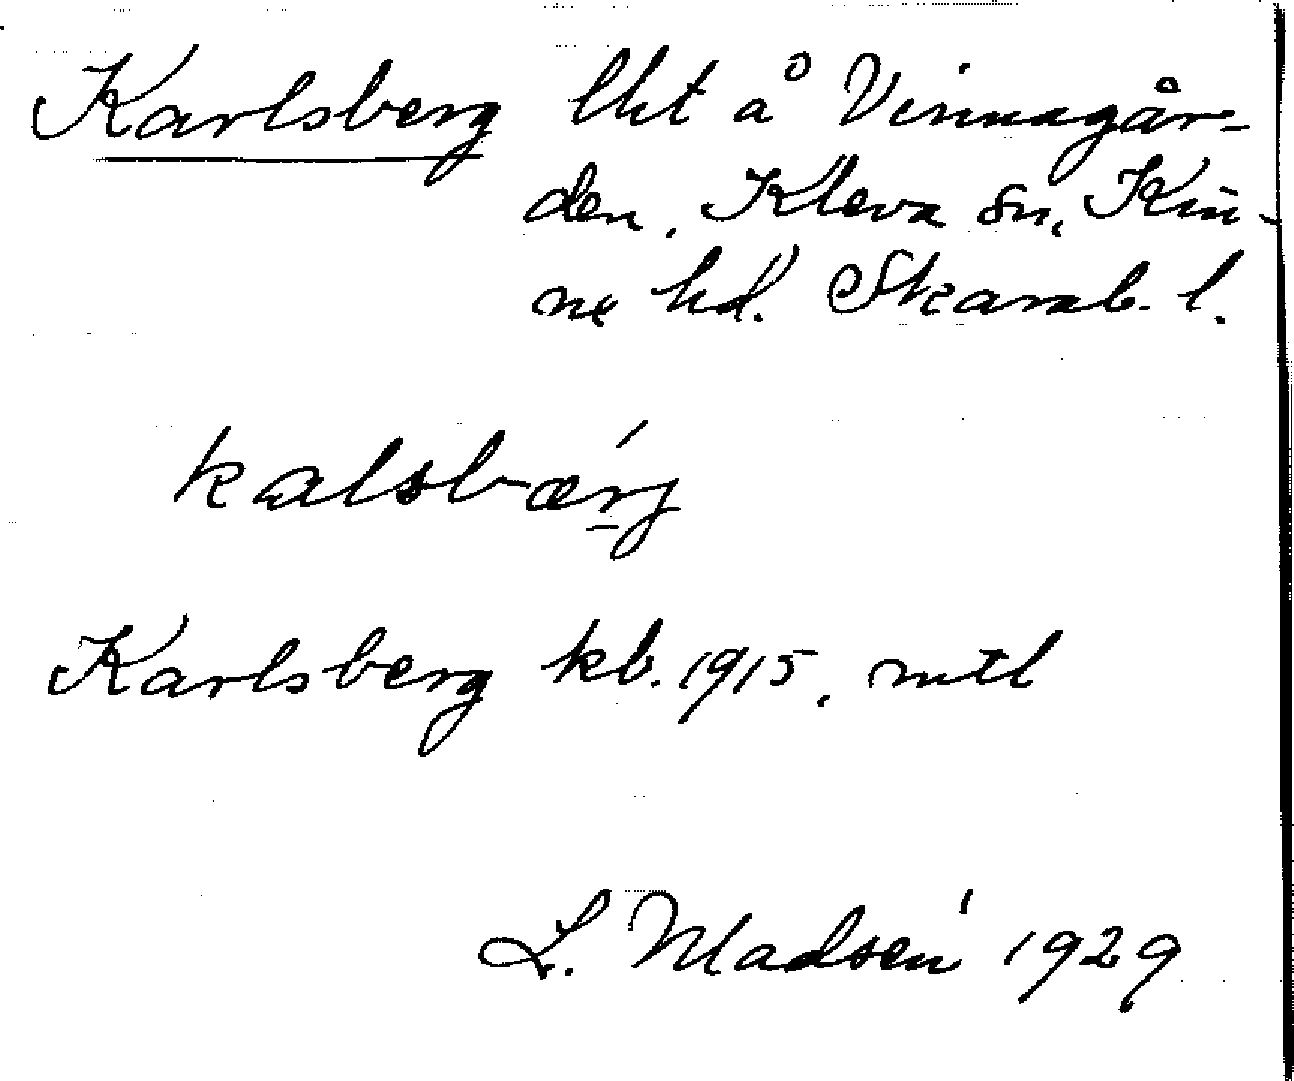 Karlsberg lht å Vinnagår-
den, Kleva sn, Kin-
ne hd. Skarab. l.
kalsbærj
Karlsberg kb. 1915, mtl
L. Madsén 1929